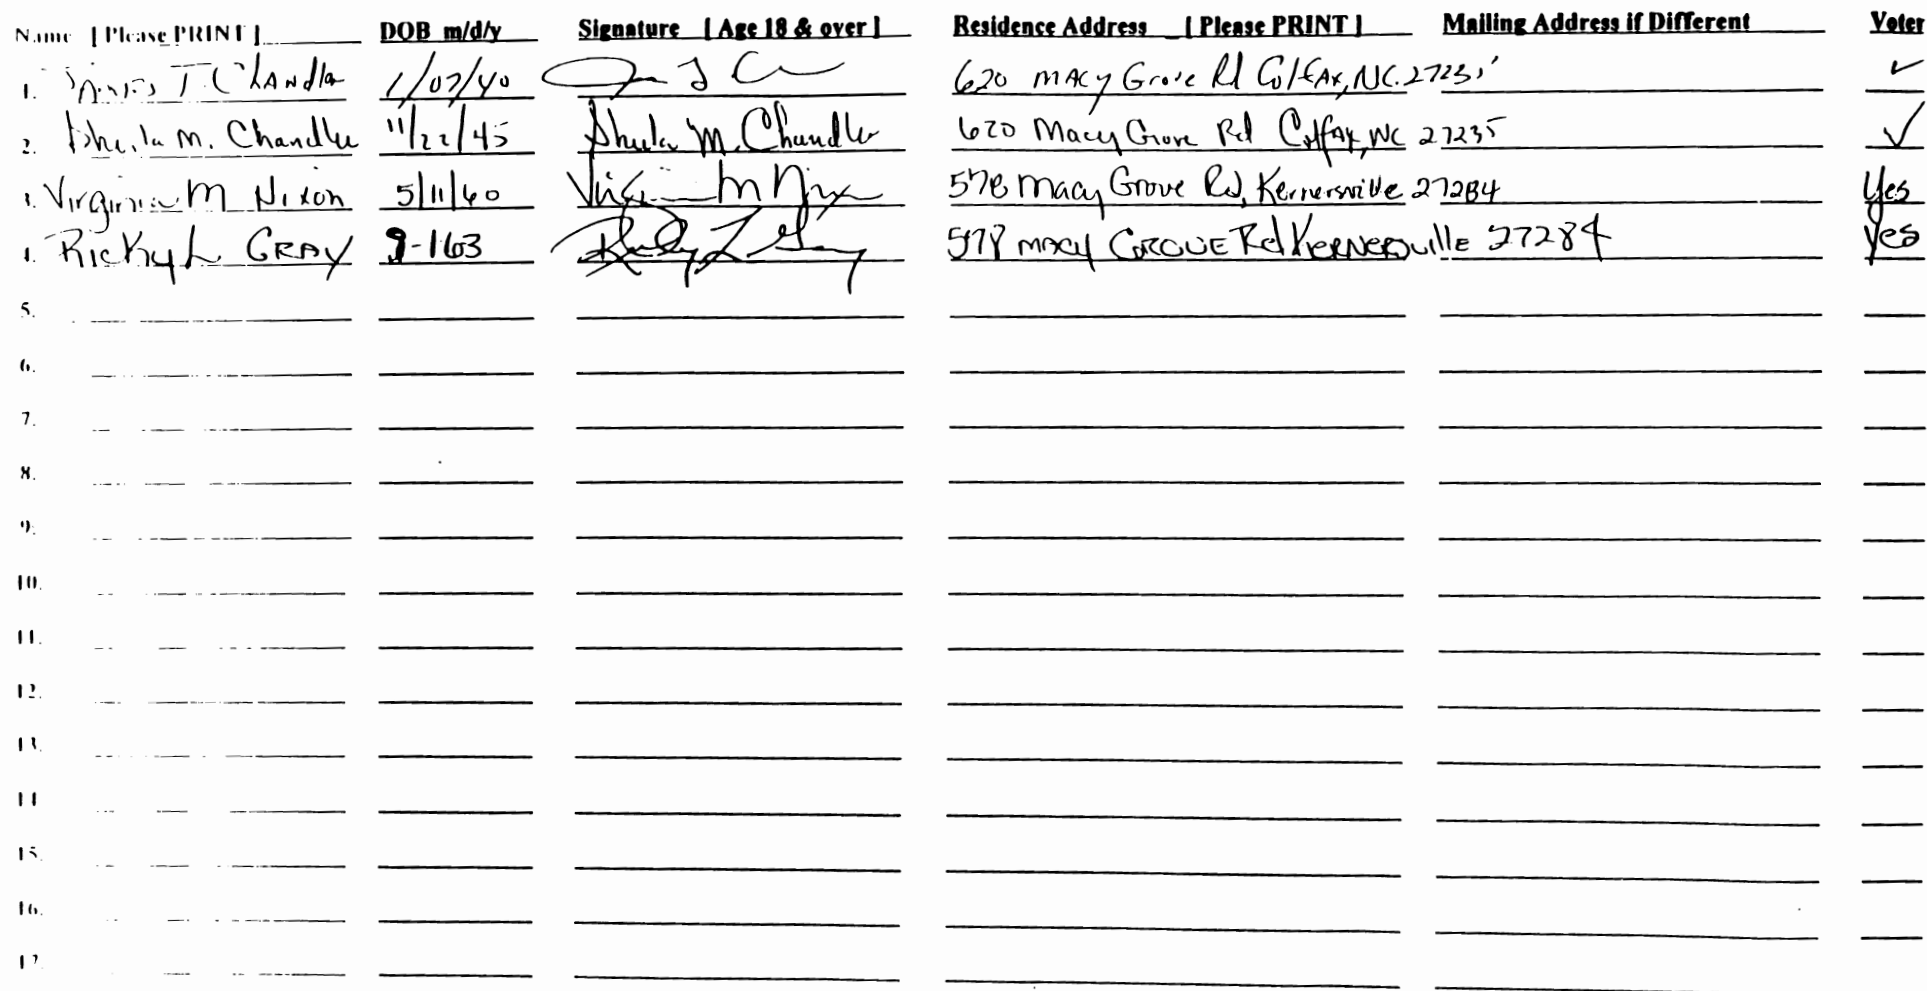 Name [ Please PRINT ] DOB m/d/y Signature [ Age 18 & over ] Residence Address [ Please PRINT ] Mailing Address if Different Voter
1. T Chandler 1/07/40 620 Macy Grove Rd Colfax, NC. 27235 ✓
2. Sheila M. Chandler 11/22/45 Sheila M. Chandler 620 Macy Grove Rd Colfax, NC 27235 ✓
3. Virginia M Nixon 5/11/60 578 Macy Grove Rd, Kernersville 27284 Yes
4. Ricky L GRAY 9-163 Ricky L Gray 578 MACY GROVE Rd KERNERSville 27284 Yes
5.
6.
7.
8.
9.
10.
11.
12.
13.
14
15.
16.
17.